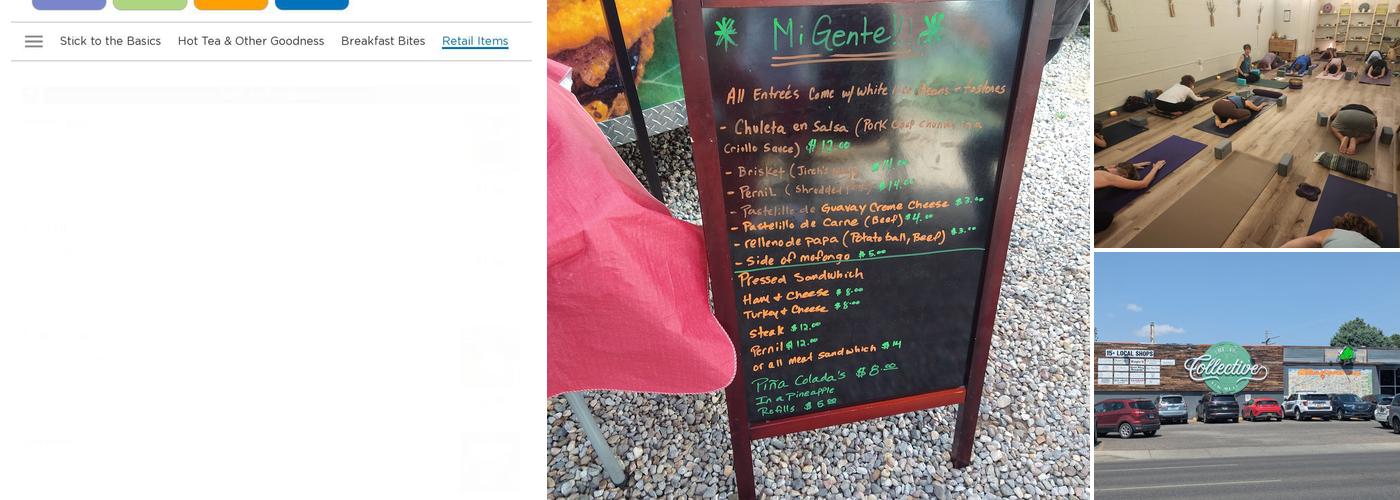 Stick to the Basics
Hot Tea & Other Goodness
Breakfast Bites
Retail Items
Mi Gente!!
All Entreés Come w/ White Beans - tostones
- Chuleta en Salsa (Pork
Criollo Sauce) $12.00
- Brisket (
- Pernil (Shredded $14.00
- Pastelillo de Guavay Creme Cheese $3.00
- Pastelillo de Carne (Beef) $4.00
- relleno de papa (Potato ball, Beef) $3.00
- Side of mofongo $5.00
Pressed Sandwhich
Ham & Cheese $8.00
Turkey & Cheese $8.00
Steak $12.00
Pernil $12.00
or all meat sandwhich $14
Piña Colada's $8.00
In a pineapple
Refills $5.00
15+ LOCAL SHOPS
Collective